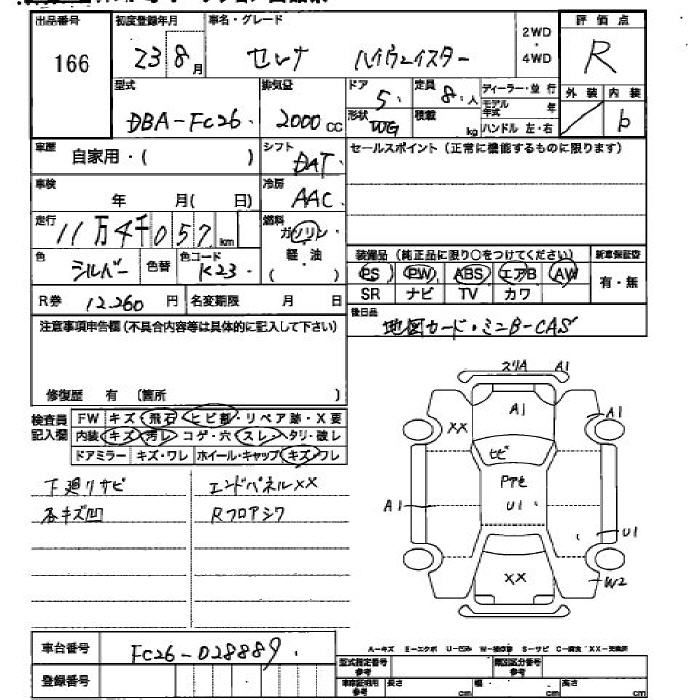 出品番号 初度登録年月 車名・グレード 2WD・4WD 評価点
166 23 8月 セレナ ハイウェイスター R
型式 排気量 ドア 定員 ディーラー・並行 外装 内装
DBA-FC26 2000cc 5 8人 モデル年式 年 b
形状 WG 積載 kg ハンドル 左・右
車歴 自家用・( ) シフト DAT セールスポイント(正常に機能するものに限ります)
車検 年 月( 日) 冷房 AAC
走行 11万4千057km 燃料 ガソリン
軽・油
( )
色 シルバー 色替 色コード K23
装備品(純正品に限り○をつけてください) 新車保証書
PS PW ABS エアB AW 有・無
SR ナビ TV カワ
R券 12,260円 名変期限 月 日
後日品 地図カード・ミニB-CAS
注意事項申告欄(不具合内容等は具体的に記入して下さい)
修復歴 有 (箇所 )
検査員記入欄 FW キズ・飛石・ヒビ割・リペア跡・X要
内装 キズ・汚レ・コゲ・穴・スレ・タリ・破レ
ドアミラー キズ・ワレ ホイール・キャップ キズ・ワレ
下廻りサビ エンドパネルXX
各キズ凹 Rフロアシワ
スリA A1
A1 A1
XX
ヒビ
Pアセ
A1 U1
U1
XX W2
車台番号 FC26-028889
登録番号
A-キズ E-エクボ U-凹み W-補修跡 S-サビ C-腐食 XX-交換済
型式指定番号 参考 類別区分番号 参考
車庫証明用 参考 長さ cm 幅 cm 高さ cm